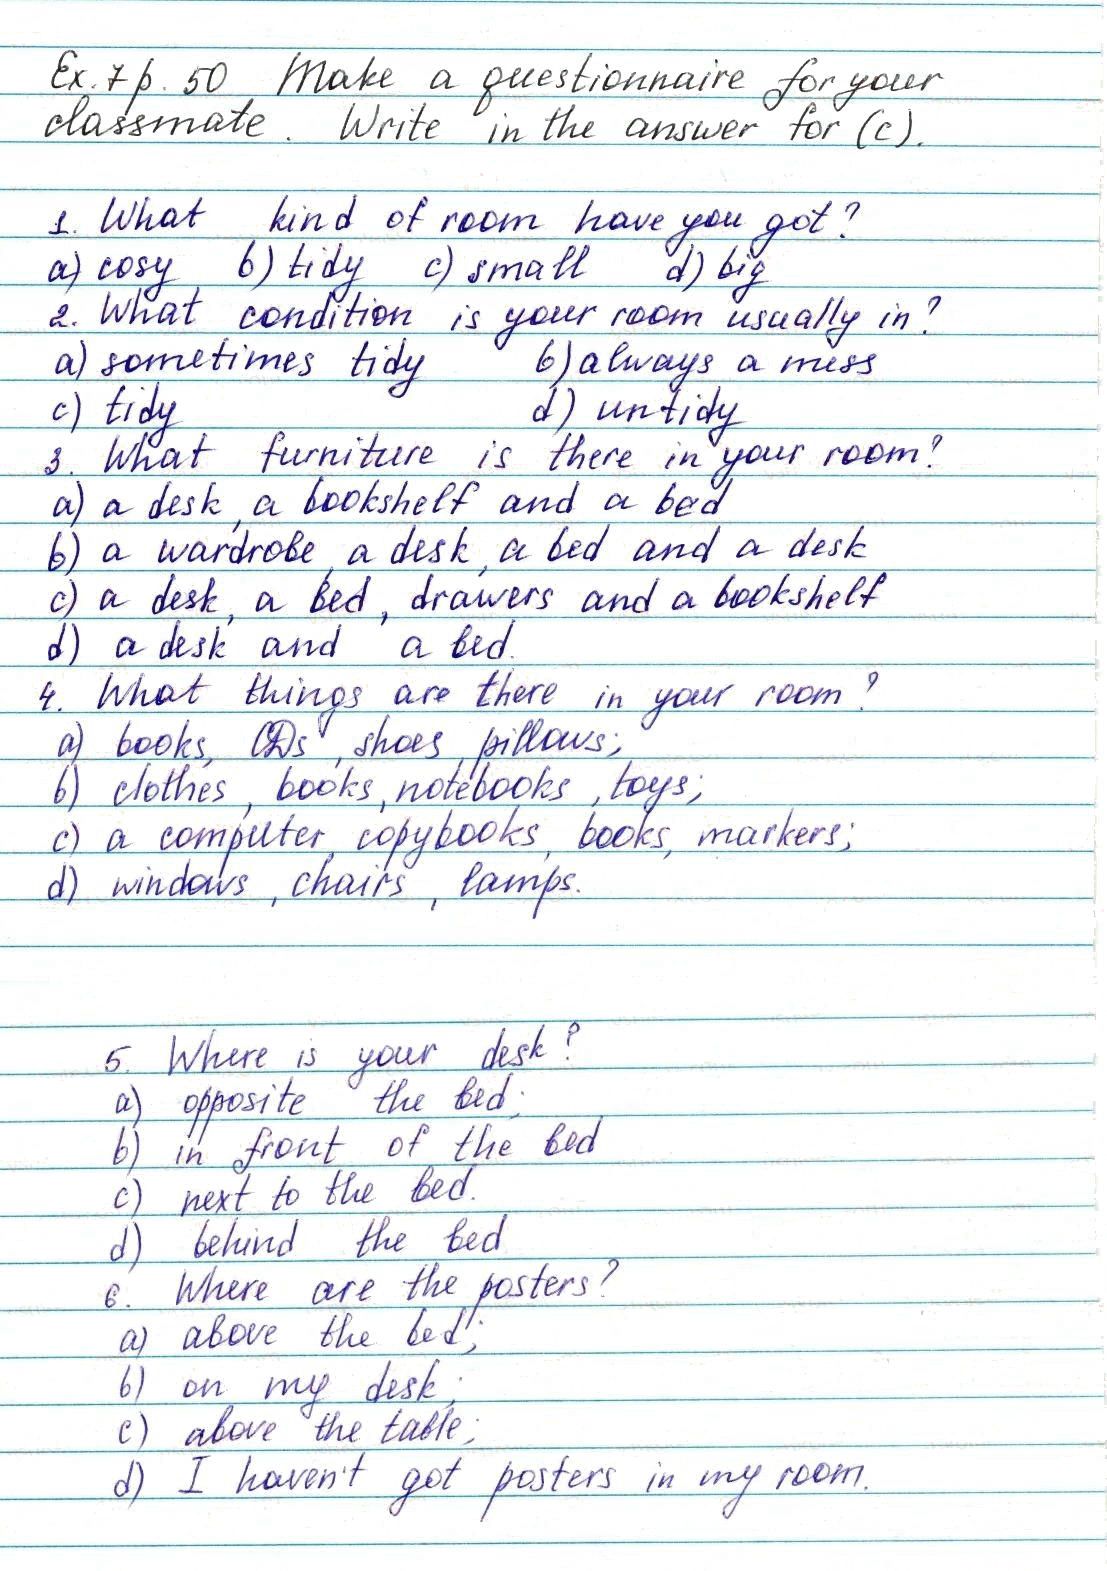 Ex. 7 p. 50 Make a questionnaire for your
classmate. Write in the answer for (c).
1. What kind of room have you got?
a) cosy b) tidy c) small d) big
2. What condition is your room usually in?
a) sometimes tidy b) always a mess
c) tidy d) untidy
3. What furniture is there in your room?
a) a desk, a bookshelf and a bed
b) a wardrobe, a desk, a bed and a desk
c) a desk, a bed, drawers and a bookshelf
d) a desk and a bed.
4. What things are there in your room?
a) books, CDs, shoes, pillows;
b) clothes, books, notebooks, toys;
c) a computer, copybooks, books, markers;
d) windows, chairs, lamps.
5. Where is your desk?
a) opposite the bed;
b) in front of the bed
c) next to the bed.
d) behind the bed
6. Where are the posters?
a) above the bed;
b) on my desk;
c) above the table;
d) I haven't got posters in my room.